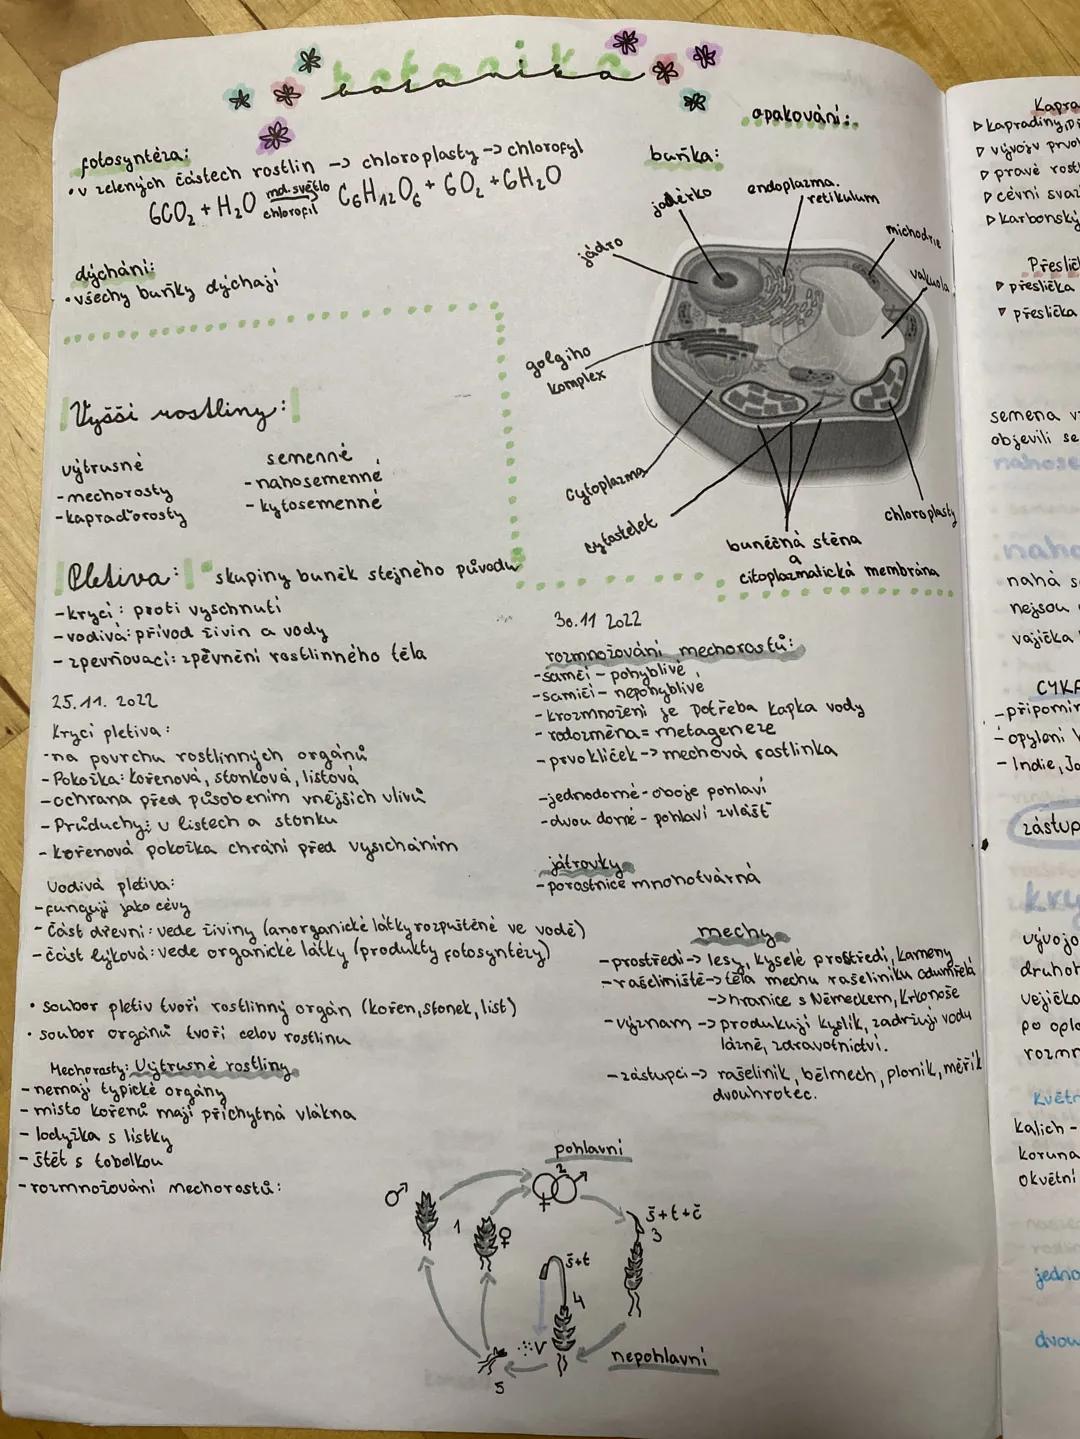 botanika
fotosyntéza:
• v zelených částech rostlin -> chloroplasty -> chlorofyl
6CO₂ + H₂O md. světlo chlorofil C₆H₁₂O₆ + 6O₂ + 6H₂O
dýchání:
• všechy buňky dýchají
Vyšší rostliny:
výtrusné
- mechorosty
- kapraďorosty
semenné
- nahosemenné
- kytosemenné
opakování:
buňka:
jadérko
endoplazma.
retikulum
michodrie
jádro
vakuola
golgiho
komplex
Cytoplazma
cytostelet
chloroplasty
buněčná stěna
a
citoplazmatická membrána
Pletiva: • skupiny buněk stejného původu
- krycí: proti vyschnutí
- vodivá: přívod živin a vody
- zpevňovací: zpěvnění rostlinného těla
25.11. 2022
Krycí pletiva:
- na povrchu rostlinných orgánů
- Pokožka: kořenová, stonková, listová
- ochrana před působením vnějších vlivů
- Průduchy: v listech a stonku
- kořenová pokožka chrání před vysicháním
Vodivá pletiva:
- fungují jako cévy
- část dřevní: vede živiny (anorganické látky rozpuštěné ve vodě)
- část lýková: vede organické látky (produkty fotosyntézy)
• soubor pletiv tvoří rostlinný orgán (kořen, stonek, list)
• soubor orgánů tvoří celov rostlinu
Mechorosty: Výtrusné rostliny
- nemají typické orgány
- místo kořenů mají příchytná vlákna
- lodyžka s lístky
- štět s tobolkou
- rozmnožování mechorostů:
30.11 2022
rozmnožování mechorostů:
- samčí - pohyblivé
- samičí - nepohyblivé
- krozmnožení je potřeba kapka vody
- rodozměna = metageneze
- prvoklíček -> mechová rostlinka
- jednodomé - oboje pohlaví
- dvou domé - pohlaví zvlášť
játrovky
- porostnice mnohotvárná
mechy
- prostředí -> lesy, kyselé prostředí, kameny
- rašeliniště -> těla mechu rašeliniku odumřelá
-> hranice s Německem, Krkonoše
- význam -> produkují kyslík, zadržují vodu
lázně, zdravotnictví.
- zástupci -> rašeliník, bělmech, ploník, měřík
dvouhrotec.
pohlavní
♂
1
♀
2
š+t+č
3
š+t
4
v
5
nepohlavní
Kapra
▷ kapradiny, př
▷ vývojv prvo
▷ pravé rost
▷ cévní svaz
▷ karbonský
Přeslič
▷ přeslička
▷ přeslička
semena v
objevili se
nahose
naho
nahá s
nejsou
vajíčka
CYKA
- připomín
- opylení
- Indie, Ja
zástup
kry
vývojo
druhoh
vejíčko
po oplo
rozmn
květn
kalich -
koruna
okvětní
jedno
dvou